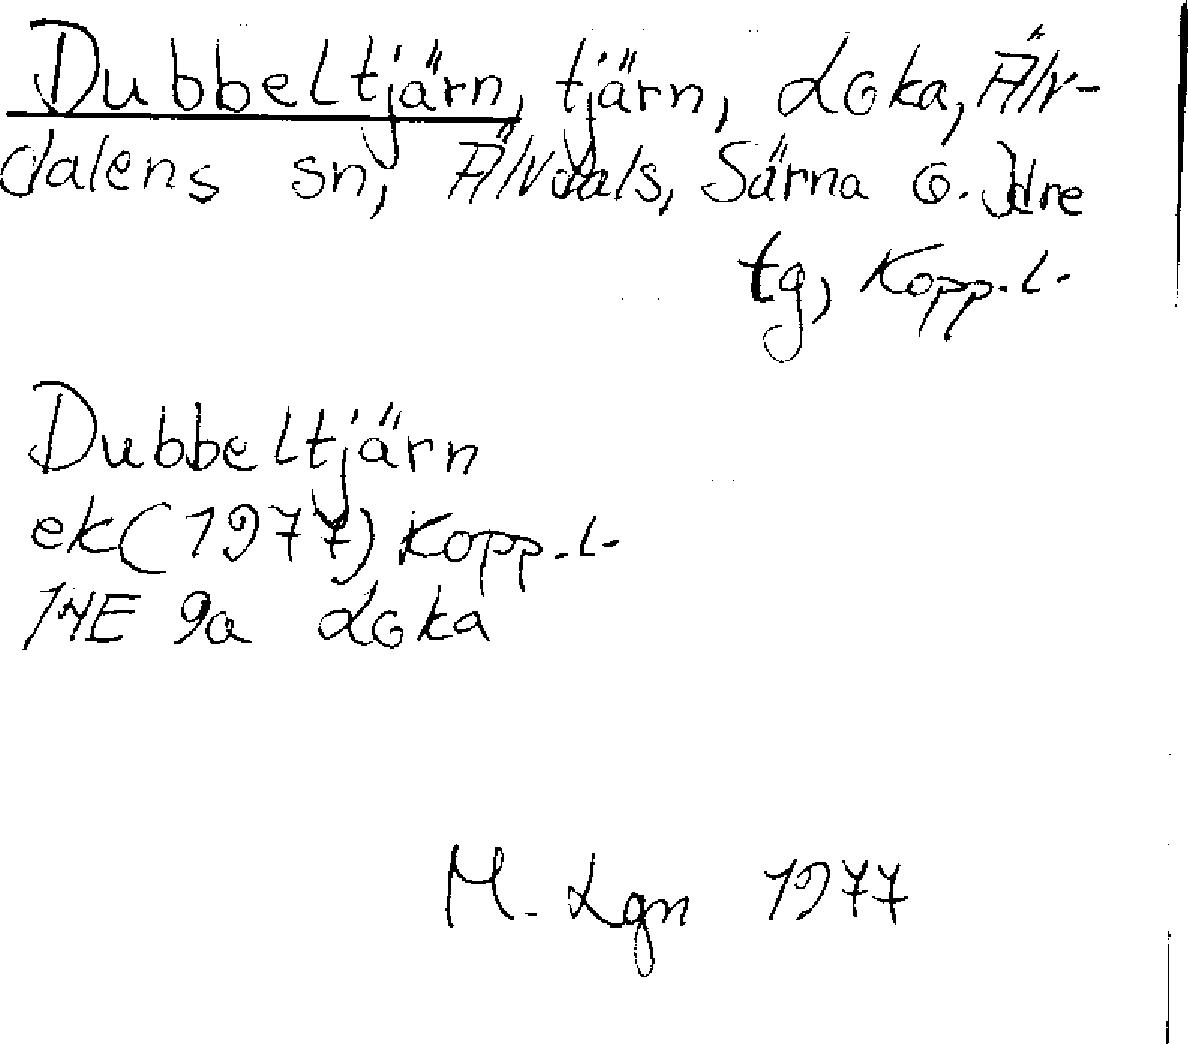 Dubbeltjärn, tjärn, Loka, Älv-
dalens sn, Älvdals, Särna o. Idre
tg, Kopp. l.
Dubbeltjärn
ek (1977) Kopp. l.
14E 9a Loka
M. Lgn 1977